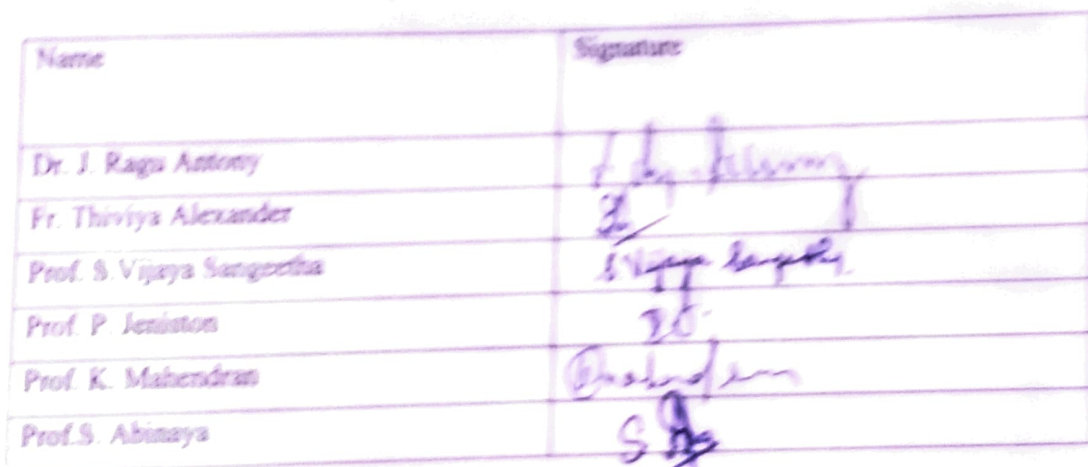 Name Signature
Dr. J. Ragu Antony
Fr. Thiviya Alexander
Prof. S.Vijaya Sangeetha S Vijaya Sangeetha
Prof. P. Jeniston
Prof. K. Mahendran
Prof.S. Abinaya